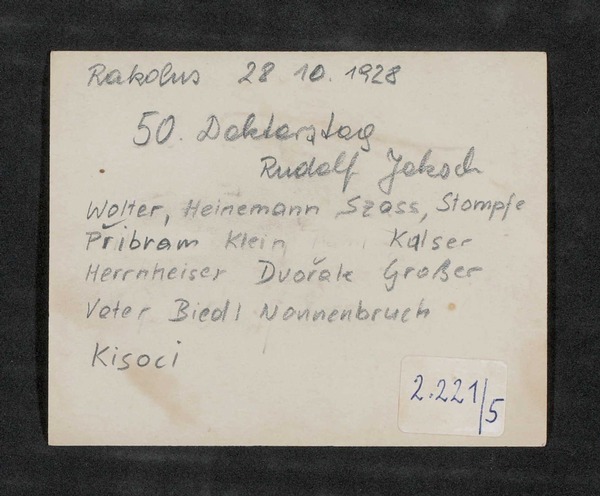 Rakolus 28 10. 1928
50. Doktorstag
Rudolf Jaksch
Wolter, Heinemann Szass, Stompfe
Přibram Klein Kulser
Herrnheiser Dvořak Großer
Vater Biedl Nonnenbruch
Kisoci
2.221/5